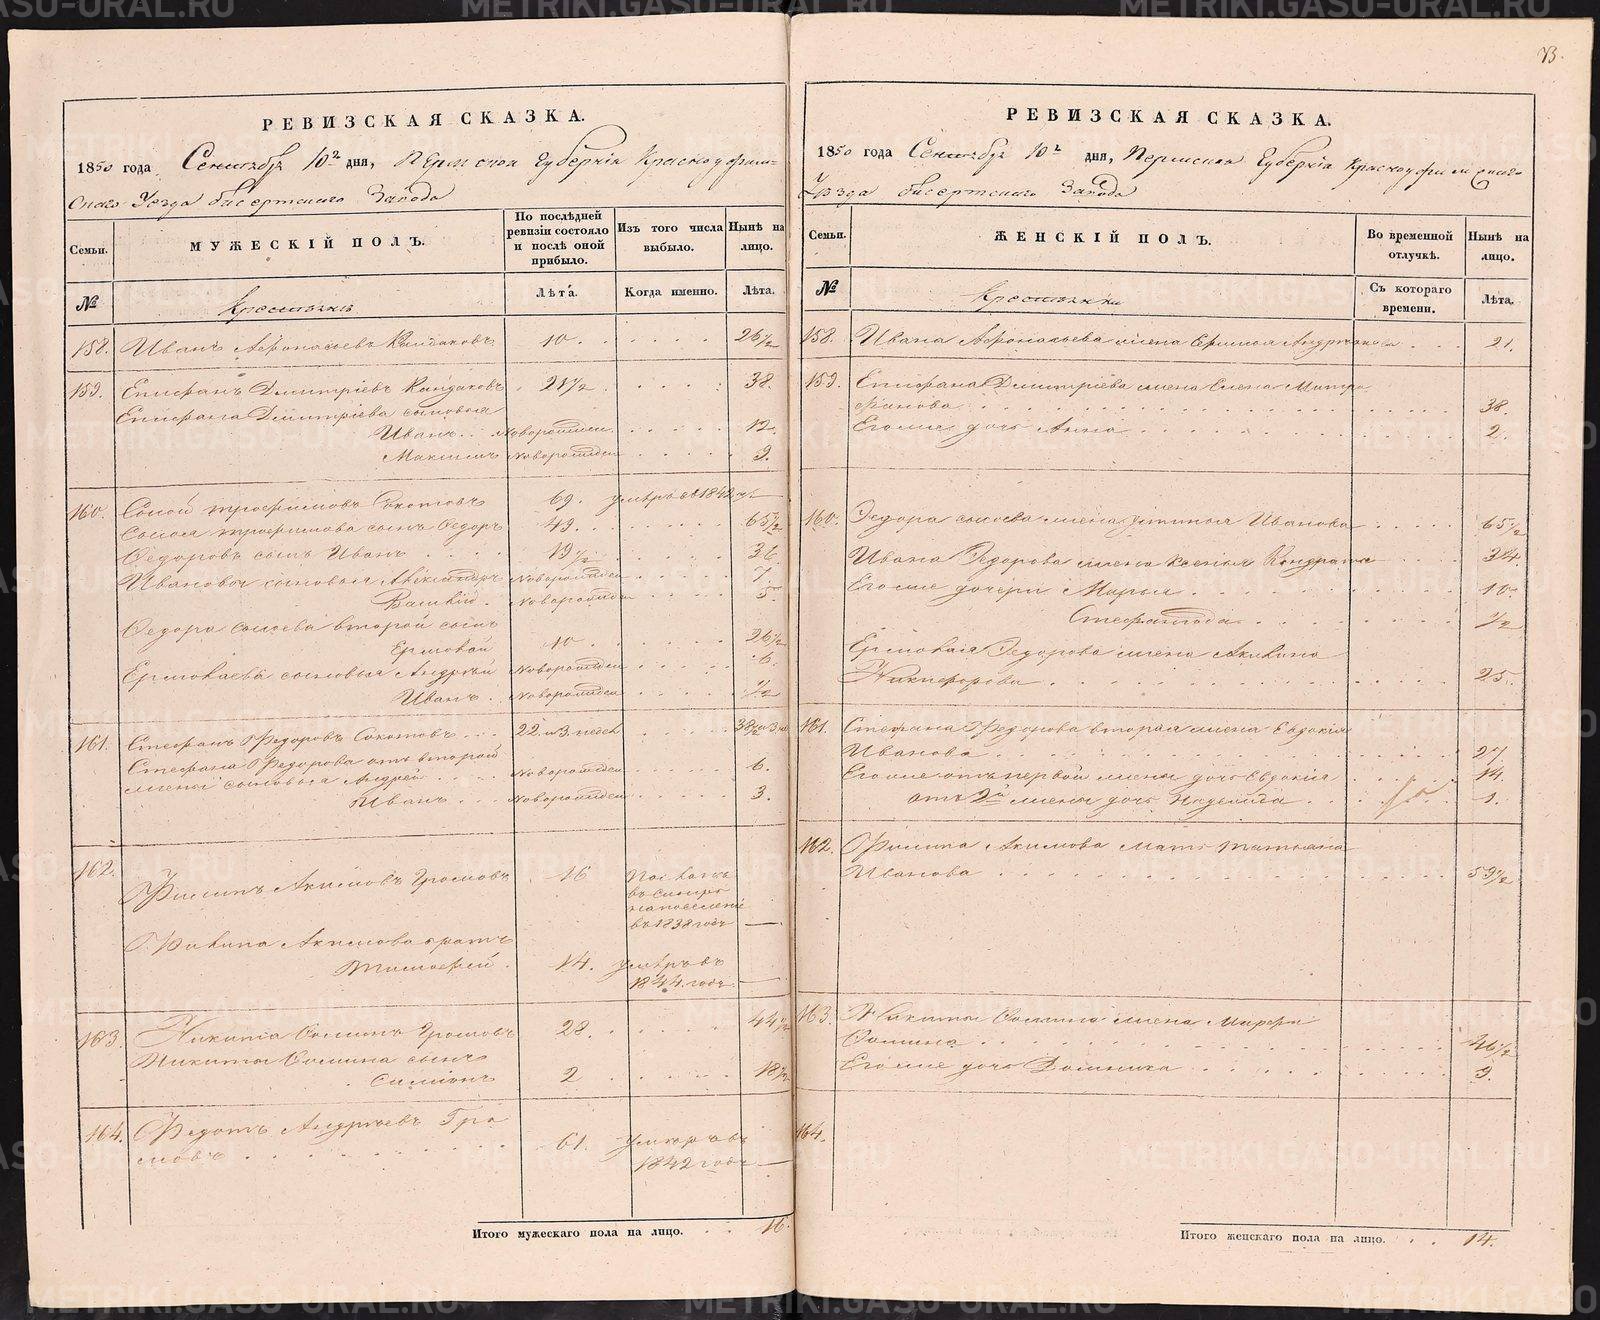 РЕВИЗСКАЯ СКАЗКА.
1850 года Сентябр 10го дня, Пермской Губерніи Красноуфим-
скаго Уезда бисертскаго Завода
Семьи.
МУЖЕСКІЙ ПОЛЪ.
По послѣдней ревизіи состояло и послѣ оной прибыло.
Изъ того числа выбыло.
Нынѣ на лицо.
№
Крестьяне
Лѣта.
Когда именно.
Лѣта.
158. Иванъ Афонасьевъ 10 26½
159. Епифанъ Дмитріевъ 21½ 38.
Епифана Дмитріева сыновья
Иванъ Новорожден 12.
Максимъ Новорожден 9.
160. Сысой Трофимовъ 69. умеръ въ 1842 г.
Сысоя Трофимова сынъ Федоръ 49. 65½
Федоровъ сынъ Иванъ 19½ 36
Ивановы сыновья Александръ Новорожден 7.
Новорожден 5.
Федора Сысоева второй сынъ
Ермолай 10. 26½
Ермолаева сыновья Андрей Новорожден 6.
Иванъ Новорожден ½
161. Стефанъ Федоровъ 22 и 3 недел
Стефана Федорова отъ второй
жены сыновья Андрей Новорожден 6.
Иванъ Новорожден 3.
162. Филипъ Акимовъ Громовъ 16
въ 1838 годе
Филипа Акимова братъ
Тимофей 14. умеръ въ
1844 годе
163. Никита Фоминъ Громовъ 28. 44½
Никиты Фомина сынъ
Симіонъ 2 18½
164. Федотъ Андреевъ Гро
мовъ 61. умеръ въ
1842 годе
Итого мужескаго пола на лицо. 16.
РЕВИЗСКАЯ СКАЗКА.
1850 года Сентябр 10го дня, Пермской Губерніи Красноуфимскаго
Уезда бисертскаго Завода
Семьи.
ЖЕНСКІЙ ПОЛЪ.
Во временной отлучкѣ.
Нынѣ на лицо.
№
Крестьянки
Съ котораго времени.
Лѣта.
158. Ивана Афонасьева жена 21.
159. Епифана Дмитріева жена Елена Митро
фанова 38.
Его же дочь Анна 2.
160. Федора Сысоева жена Устинья Иванова 65½
Ивана Федорова жена Ксенья Кондратьева 34.
Его же дочери Марья 10.
Стефанида ½
Ермолая Федорова жена Акилина
Никифорова 25.
161. Стефана Федорова вторая жена Евдокія
Иванова 27
Его же отъ первой жены дочь Евдокія 14.
отъ 2й жены дочь Надежда 1.
162. Филипа Акимова мать Татьяна
Иванова 59½
163. Никиты Фомина жена Марфа
Фомина 46½
Его же дочь Домника 9.
164.
Итого женскаго пола на лицо. 14.
METRIKI.GASO-URAL.RU